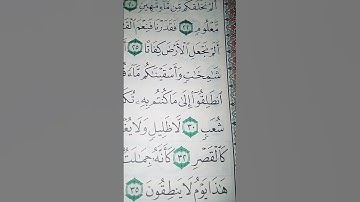 أَلَمْ نَخْلُقكُّم مِّن مَّآءٍ مَّهِينٍ
مَّعْلُومٍ ٢٢ فَقَدَرْنَا فَنِعْمَ ٱلْقَـ
أَلَمْ نَجْعَلِ ٱلْأَرْضَ كِفَاتًا ٢٥
شَـٰمِخَـٰتٍ وَأَسْقَيْنَـٰكُم مَّآءً
ٱنطَلِقُوٓا۟ إِلَىٰ مَا كُنتُم بِهِۦ تُكَـ
شُعَبٍ ٣٠ لَّا ظَلِيلٍ وَلَا يُغْـ
كَٱلْقَصْرِ ٣٢ كَأَنَّهُۥ جِمَـٰلَتٌ
هَـٰذَا يَوْمُ لَا يَنطِقُونَ ٣٥